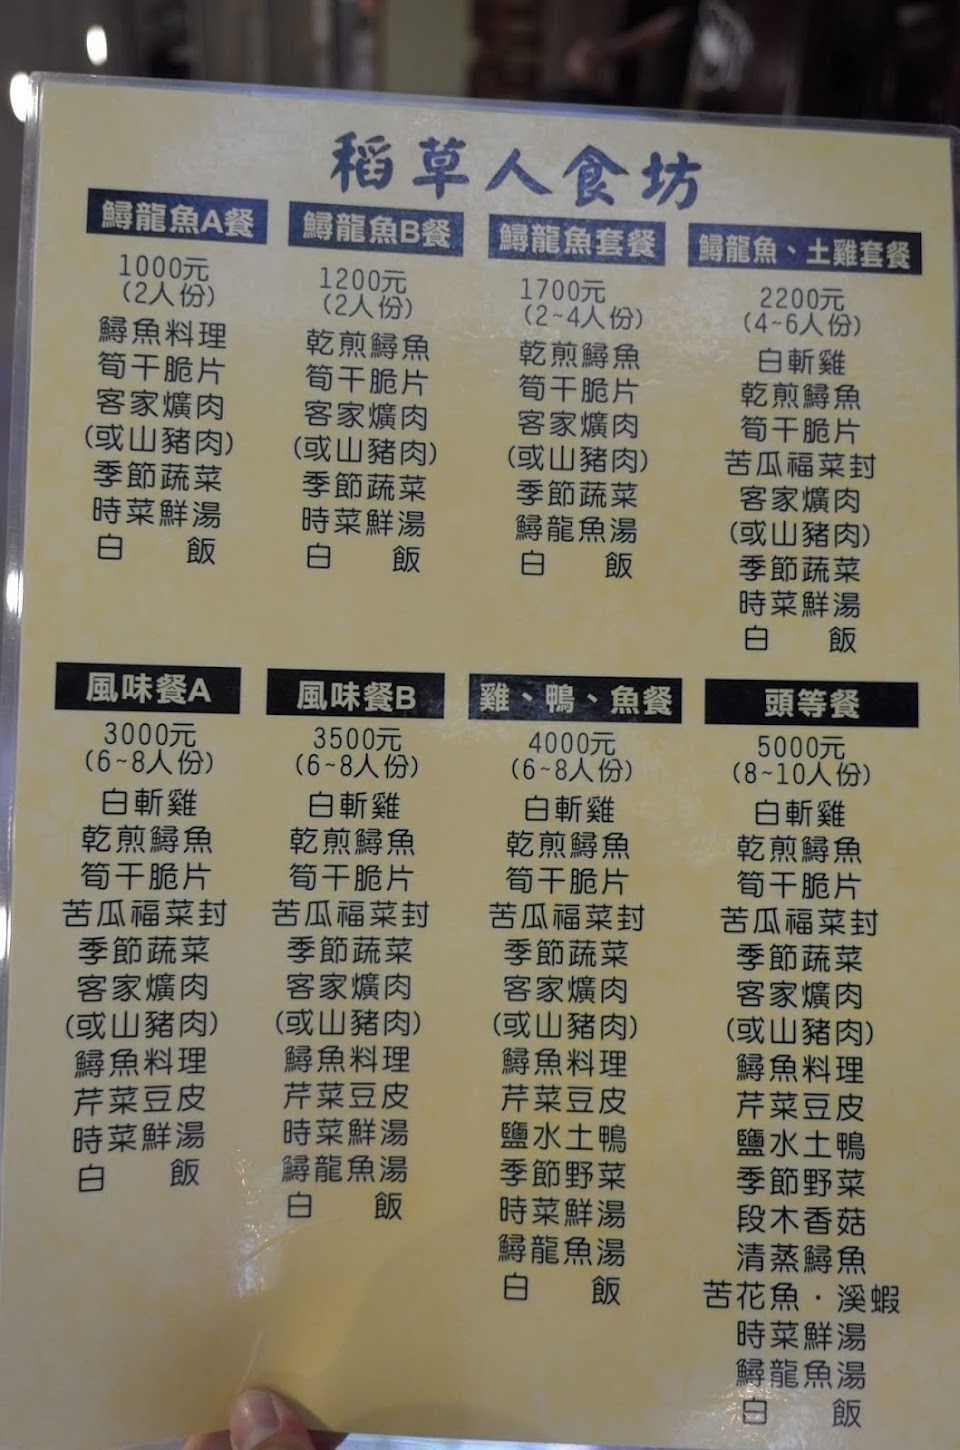 稻草人食坊
鱘龍魚A餐
1000元
(2人份)
鱘魚料理
筍干脆片
客家爌肉
(或山豬肉)
季節蔬菜
時菜鮮湯
白 飯
鱘龍魚B餐
1200元
(2人份)
乾煎鱘魚
筍干脆片
客家爌肉
(或山豬肉)
季節蔬菜
時菜鮮湯
白 飯
鱘龍魚套餐
1700元
(2~4人份)
乾煎鱘魚
筍干脆片
客家爌肉
(或山豬肉)
季節蔬菜
鱘龍魚湯
白 飯
鱘龍魚、土雞套餐
2200元
(4~6人份)
白斬雞
乾煎鱘魚
筍干脆片
苦瓜福菜封
客家爌肉
(或山豬肉)
季節蔬菜
時菜鮮湯
白 飯
風味餐A
3000元
(6~8人份)
白斬雞
乾煎鱘魚
筍干脆片
苦瓜福菜封
季節蔬菜
客家爌肉
(或山豬肉)
鱘魚料理
芹菜豆皮
時菜鮮湯
白 飯
風味餐B
3500元
(6~8人份)
白斬雞
乾煎鱘魚
筍干脆片
苦瓜福菜封
季節蔬菜
客家爌肉
(或山豬肉)
鱘魚料理
芹菜豆皮
時菜鮮湯
鱘龍魚湯
白 飯
雞、鴨、魚餐
4000元
(6~8人份)
白斬雞
乾煎鱘魚
筍干脆片
苦瓜福菜封
季節蔬菜
客家爌肉
(或山豬肉)
鱘魚料理
芹菜豆皮
鹽水土鴨
季節野菜
時菜鮮湯
鱘龍魚湯
白 飯
頭等餐
5000元
(8~10人份)
白斬雞
乾煎鱘魚
筍干脆片
苦瓜福菜封
季節蔬菜
客家爌肉
(或山豬肉)
鱘魚料理
芹菜豆皮
鹽水土鴨
季節野菜
段木香菇
清蒸鱘魚
苦花魚・溪蝦
時菜鮮湯
鱘龍魚湯
白 飯